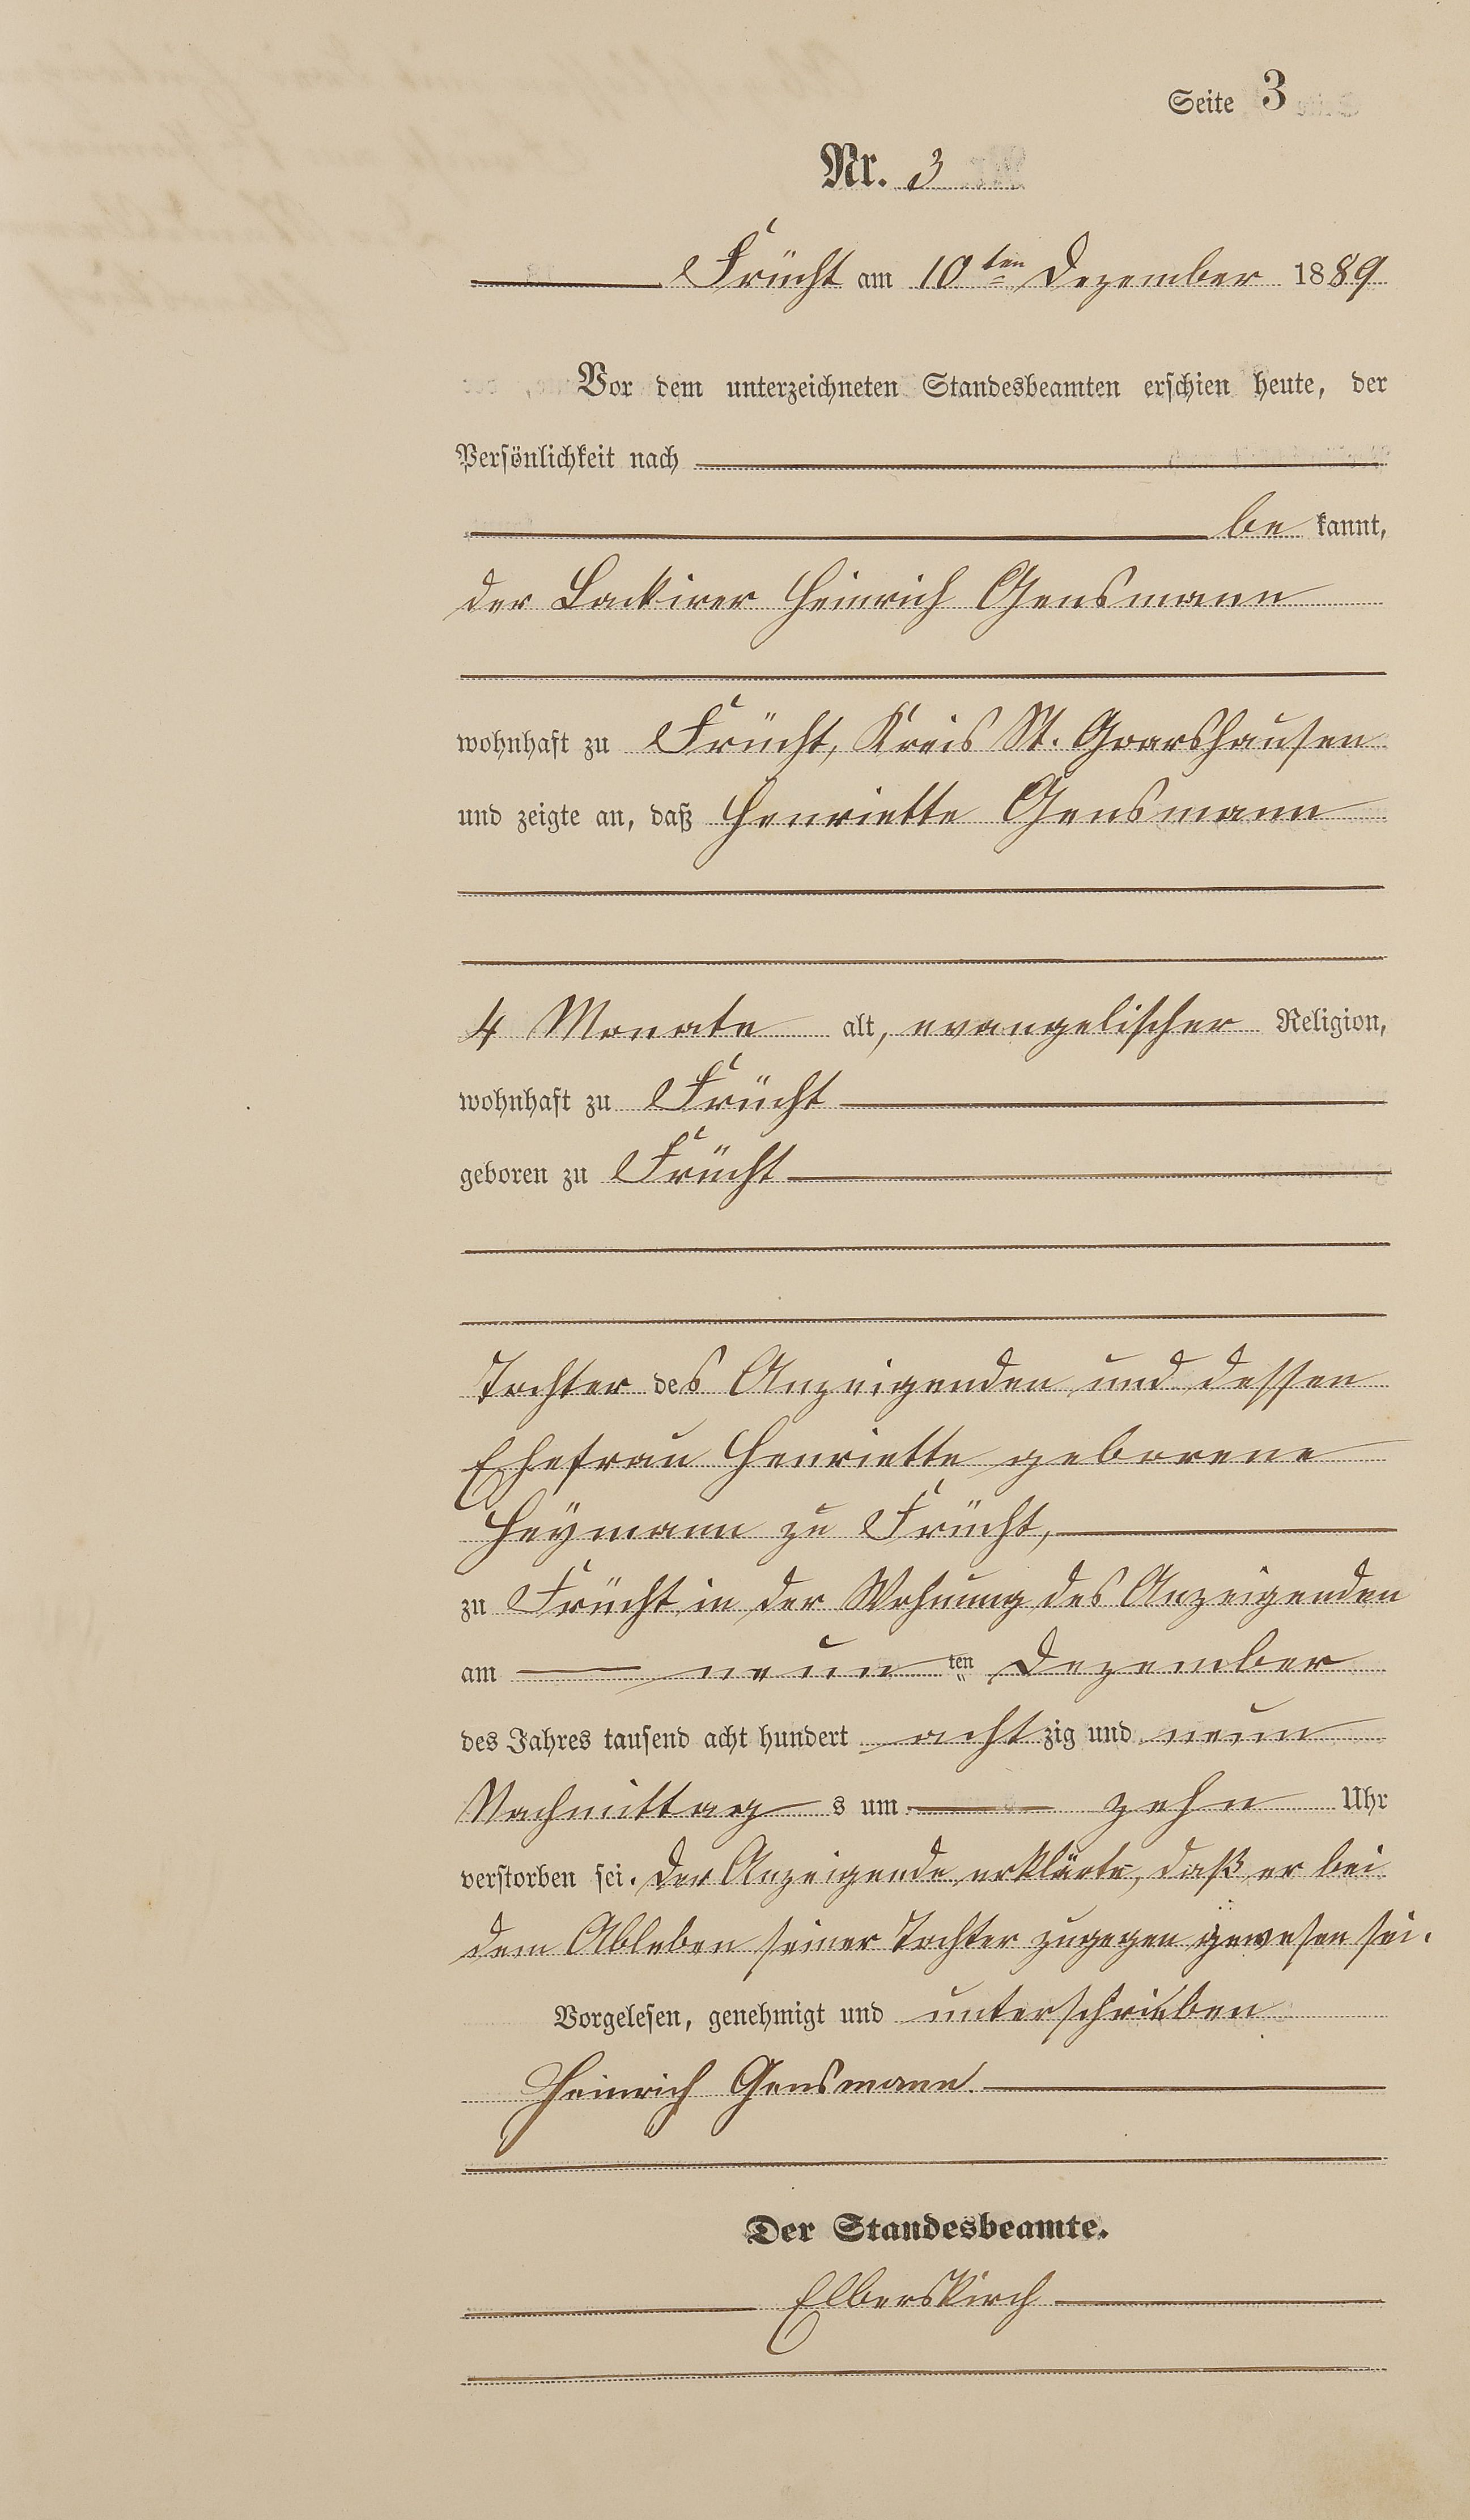 Seite 3
Nr. 3
Frücht am 10ten Dezember 1889
Vor dem unterzeichneten Standesbeamten erschien heute, der
Persönlichkeit nach
bekannt,
der Lackirer Heinrich Gensmann
wohnhaft zu Frücht, Kreis St. Goarshausen
und zeigte an, daß Henriette Gensmann
4 Monate alt, evangelischer Religion,
wohnhaft zu Frücht
geboren zu Frücht
Tochter des Anzeigenden und dessen
Ehefrau Henriette geborene
Heymann zu Frücht,
zu Frücht in der Wohnung des Anzeigenden
am neunten Dezember
des Jahres tausend acht hundert achtzig und neun
Nachmittags um zehn Uhr
verstorben sei. Der Anzeigende erklärte, daß er bei
dem Ableben seiner Tochter zugegen gewesen sei.
Vorgelesen, genehmigt und unterschrieben
Heinrich Gensmann
Der Standesbeamte.
Elberskirch